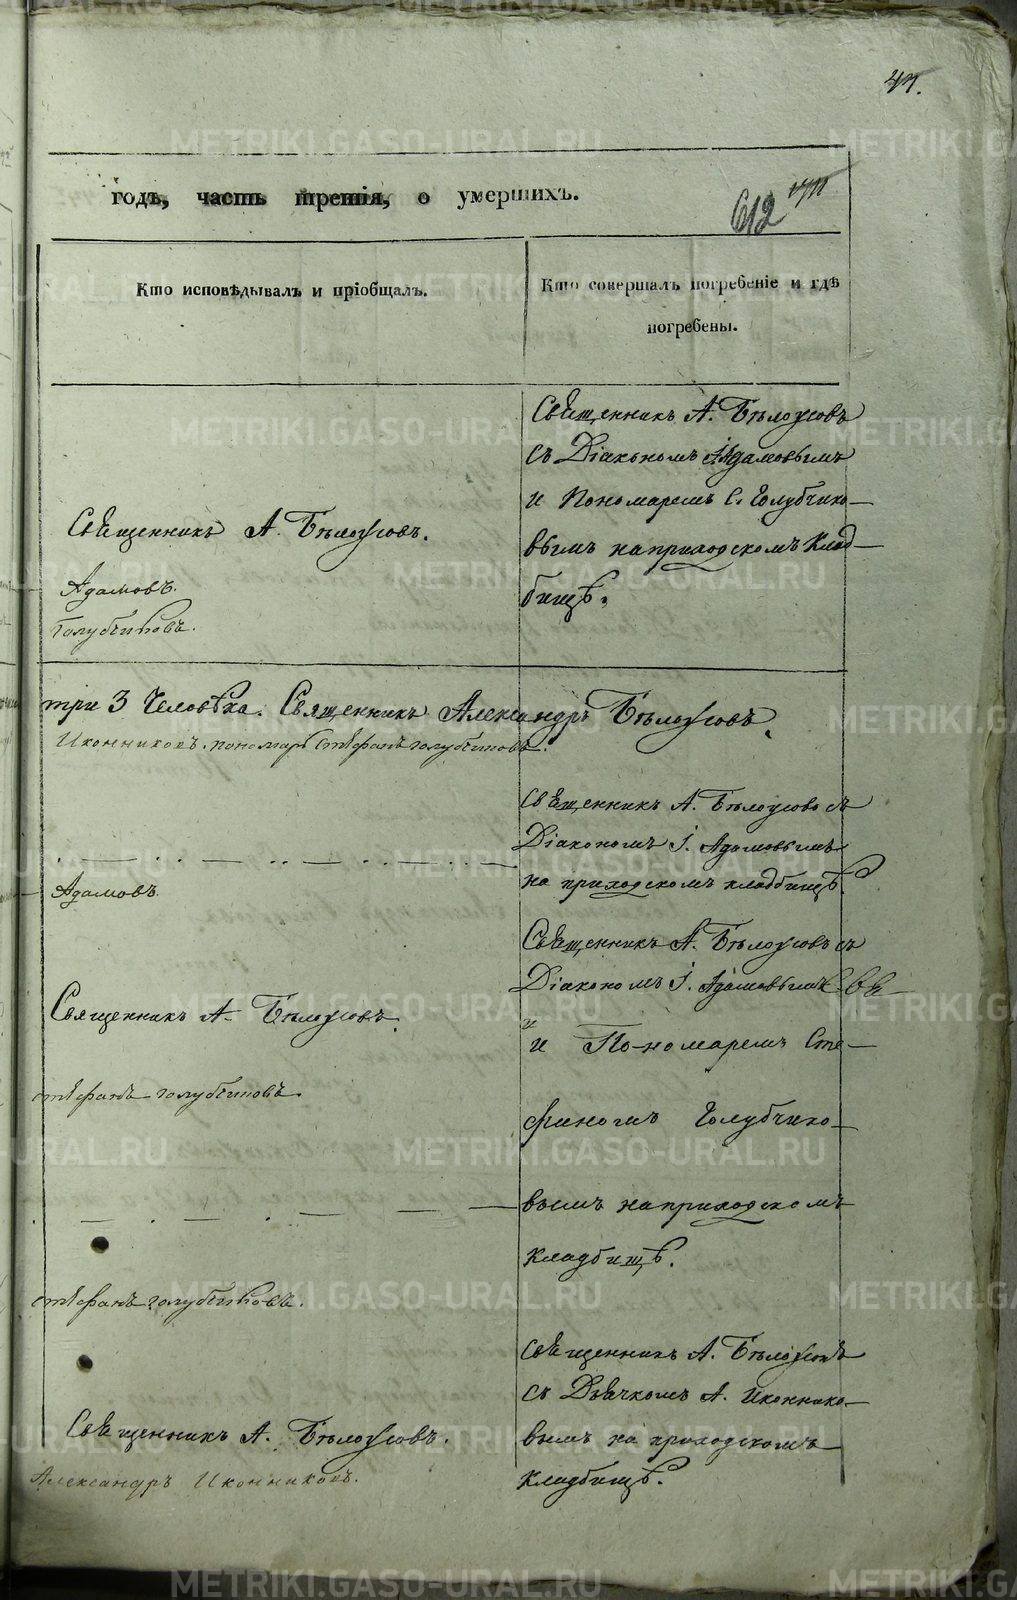 47.
годъ, часть третія, о умершихъ.
612
Кто исповѣдывалъ и пріобщалъ.
Кто совершалъ погребеніе и гдѣ
погребены.
Священникъ А. Бѣлоусовъ
съ Діакономъ І. Адамовымъ
и Пономаремъ С. Голубчико-
вымъ на приходскомъ клад-
бищѣ.
Священникъ А. Бѣлоусовъ.
Адамовъ.
Голубчиковъ.
три 3 Человѣка. Священникъ Александръ Бѣлоусовъ
Иконниковъ. пономарь Стефанъ Голубчиковъ.
Священникъ А. Бѣлоусовъ съ
Діакономъ І. Адамовымъ
на приходскомъ кладбищѣ.
Адамовъ
Священникъ А. Бѣлоусовъ съ
Діакономъ І. Адамовымъ
и Пономаремъ Сте-
фаномъ Голубчико-
вымъ на приходскомъ
кладбищѣ.
Священникъ А. Бѣлоусовъ.
Стефанъ Голубчиковъ.
Стефанъ Голубчиковъ.
Священникъ А. Бѣлоусовъ
съ Дьячкомъ А. Иконнико-
вымъ на приходскомъ
кладбищѣ.
Священникъ А. Бѣлоусовъ.
Александръ Иконниковъ.
METRIKI.GASO-URAL.RU